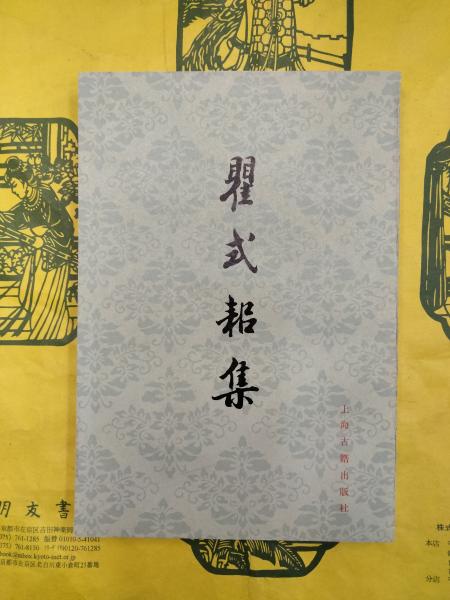 瞿式耜集
上海古籍出版社
朋友書
京都市左京区吉田神楽岡
075) 761-1285 振替 01010-5-41041
075) 761-8150 ﾌﾘｰﾀﾞｲﾔﾙ0120-761285
book@mbox.kyoto-inet.or.jp
京都市左京区北白川東小倉町25番地
株式
本店
分店